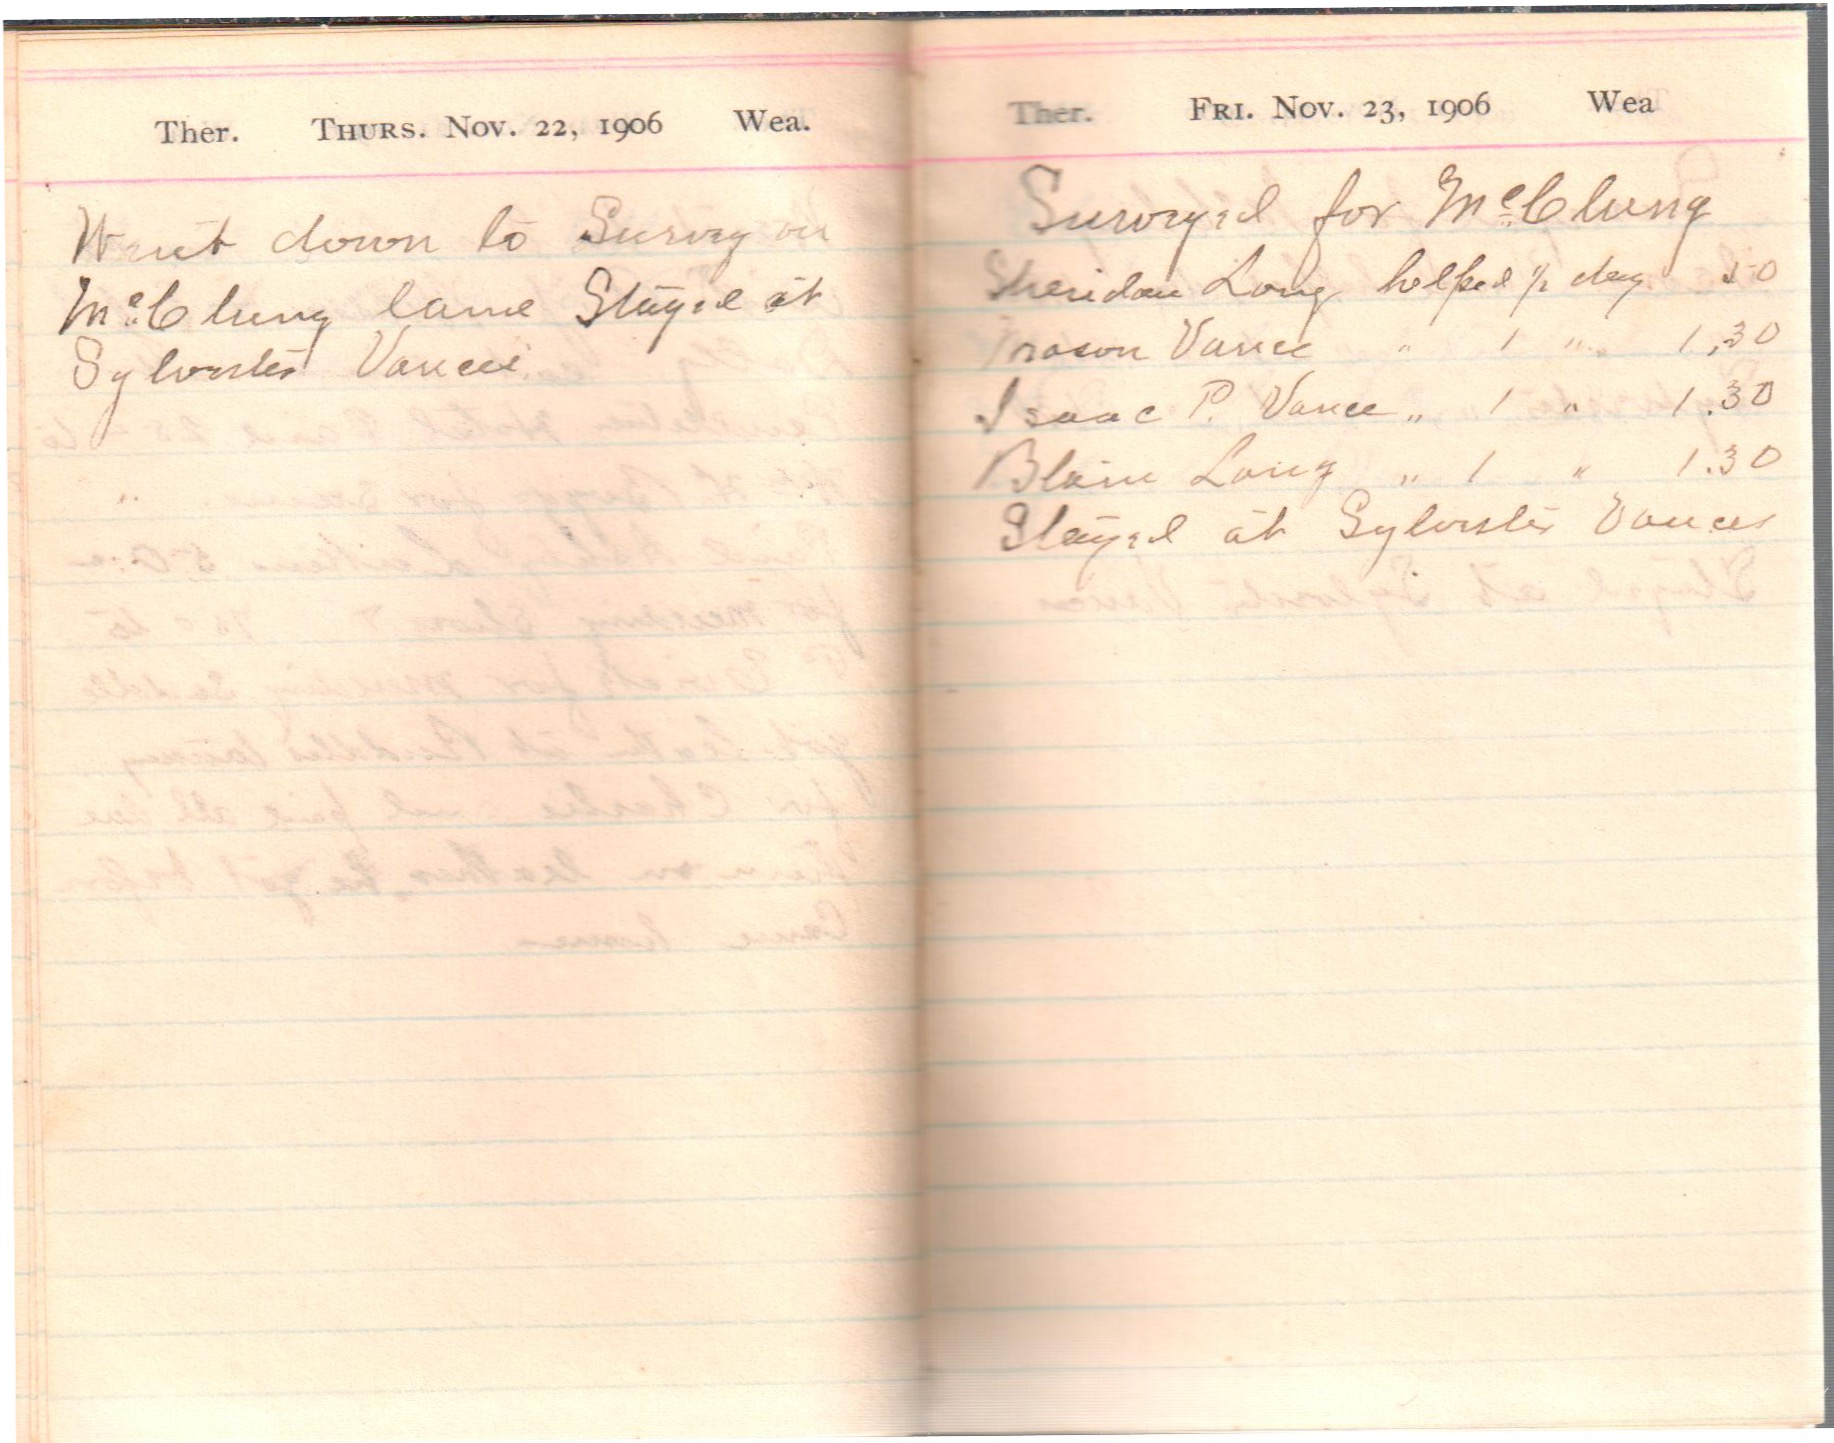 Ther. THURS. NOV. 22, 1906 Wea.
Went down to Survey on
McClung land Stayed at
Sylvester Vances
Ther. FRI. NOV. 23, 1906 Wea
Surveyed for McClung
Sheridan Long helped 1/2 day 50
Vance " 1 " 1.30
Isaac P. Vance " 1 " 1.30
Blain Long " 1 " 1.30
Stayed at Sylvester Vances